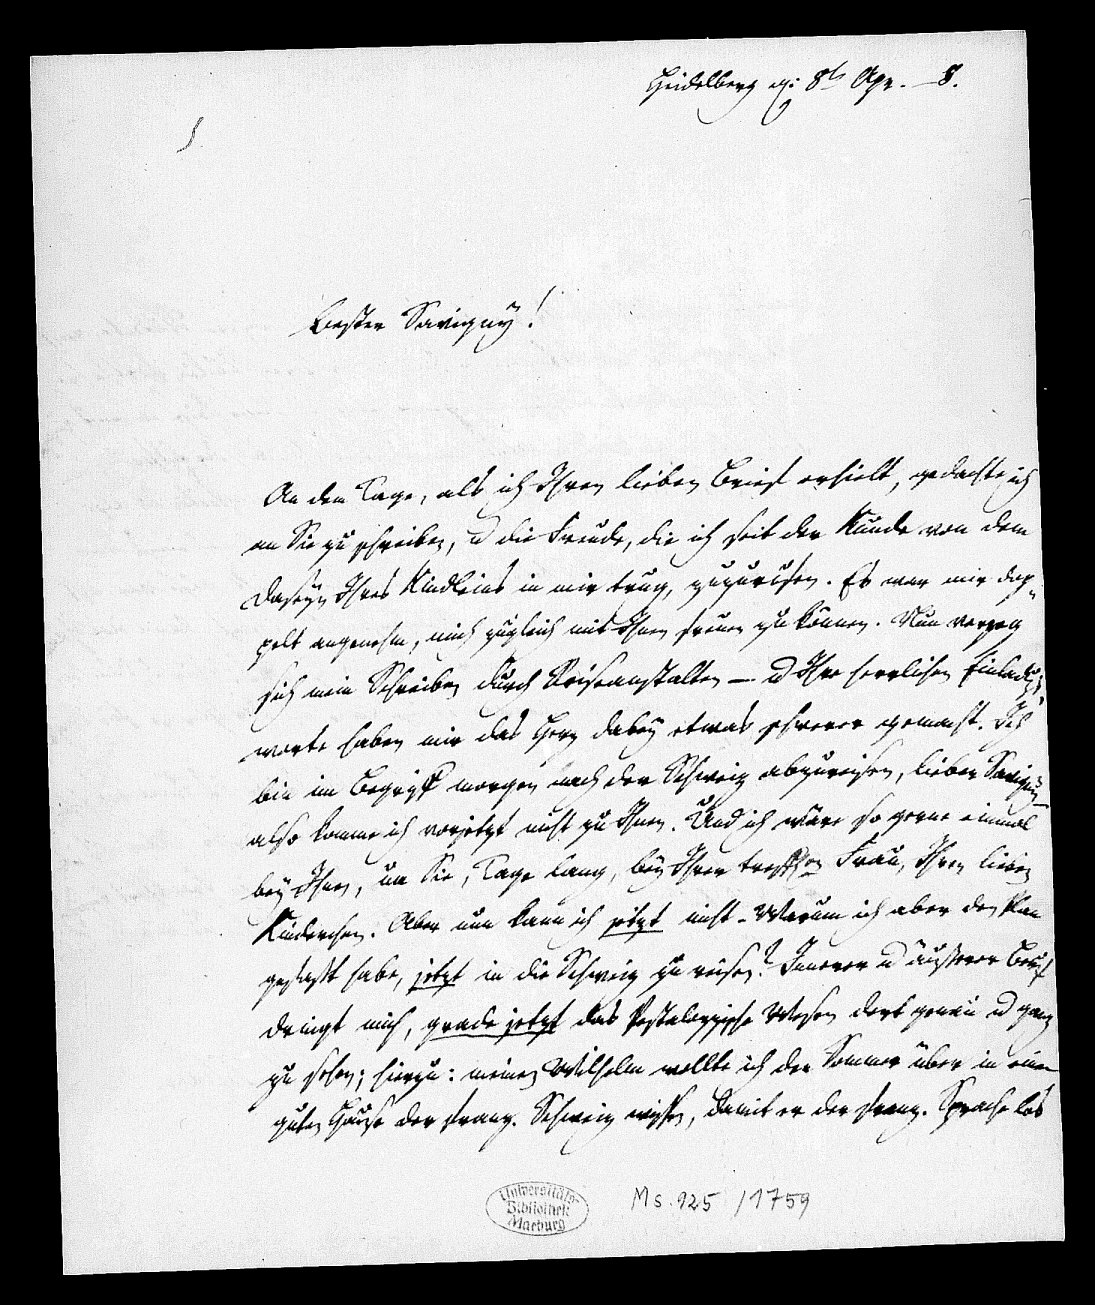 Heidelberg d: 8t Apr. – 8.
Bester Savigny!
An dem Tage, als ich Ihren lieben Brief erhielt, gedachte ich
an Sie zu schreiben, u die Freude, die ich seit der Kunde von dem
Daseyn Ihres Kindleins in mir trug, zuzurufen. Es war mir dop-
pelt angenehm, mich zugleich mit Ihnen freuen zu können. Nun verzog
sich mein Schreiben durch Reiseanstalten – u Ihre herrlichen Einladgs-
worte haben mir das Herz dabey etwas schwerer gemacht. Ich
bin im Begriff morgen nach der Schweiz abzureisen, lieber Savigny –
also komme ich vorjetzt nicht zu Ihnen. Und ich wäre so gerne einmal
bey Ihnen, um Sie, Tage lang, bey Ihrer trefflichen Frau, Ihren lieben
Kinderchen. Aber nun kann ich jetzt nicht – Warum ich aber den Plan
gefaßt habe, jetzt in die Schweiz zu reisen? Innerer u äußerer Beruf
dringt mich, grade jetzt das Pestalozzische Wesen dort genau u ganz
zu sehen; hierzu: meinen Wilhelm wollte ich den Sommer über in einem
guten Hause der franz. Schweiz wissen, damit er der franz. Sprache los
Universitäts-
Bibliothek
Marburg
Ms. 925/1759